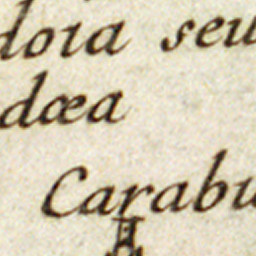 doia seu
dœa
Carabu